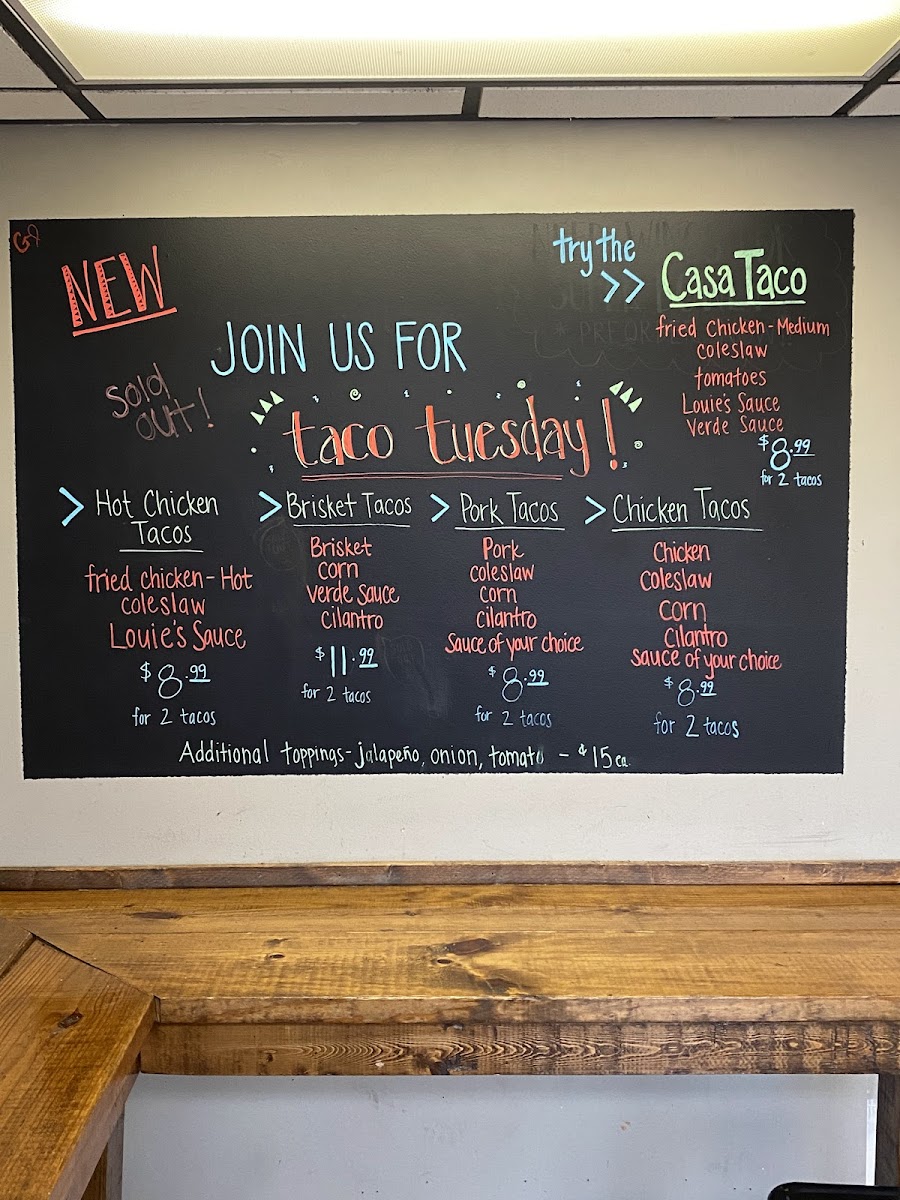 NEW
try the
>> Casa Taco
fried Chicken - Medium
coleslaw
tomatoes
Louie's Sauce
Verde Sauce
$8.99
for 2 tacos
JOIN US FOR
taco tuesday!
Sold
out!
> Hot Chicken
Tacos
fried chicken - Hot
coleslaw
Louie's Sauce
$8.99
for 2 tacos
> Brisket Tacos
Brisket
corn
verde sauce
cilantro
$11.99
for 2 tacos
> Pork Tacos
Pork
coleslaw
corn
cilantro
Sauce of your choice
$8.99
for 2 tacos
> Chicken Tacos
Chicken
coleslaw
corn
cilantro
sauce of your choice
$8.99
for 2 tacos
Additional toppings - jalapeño, onion, tomato - $15 ea.